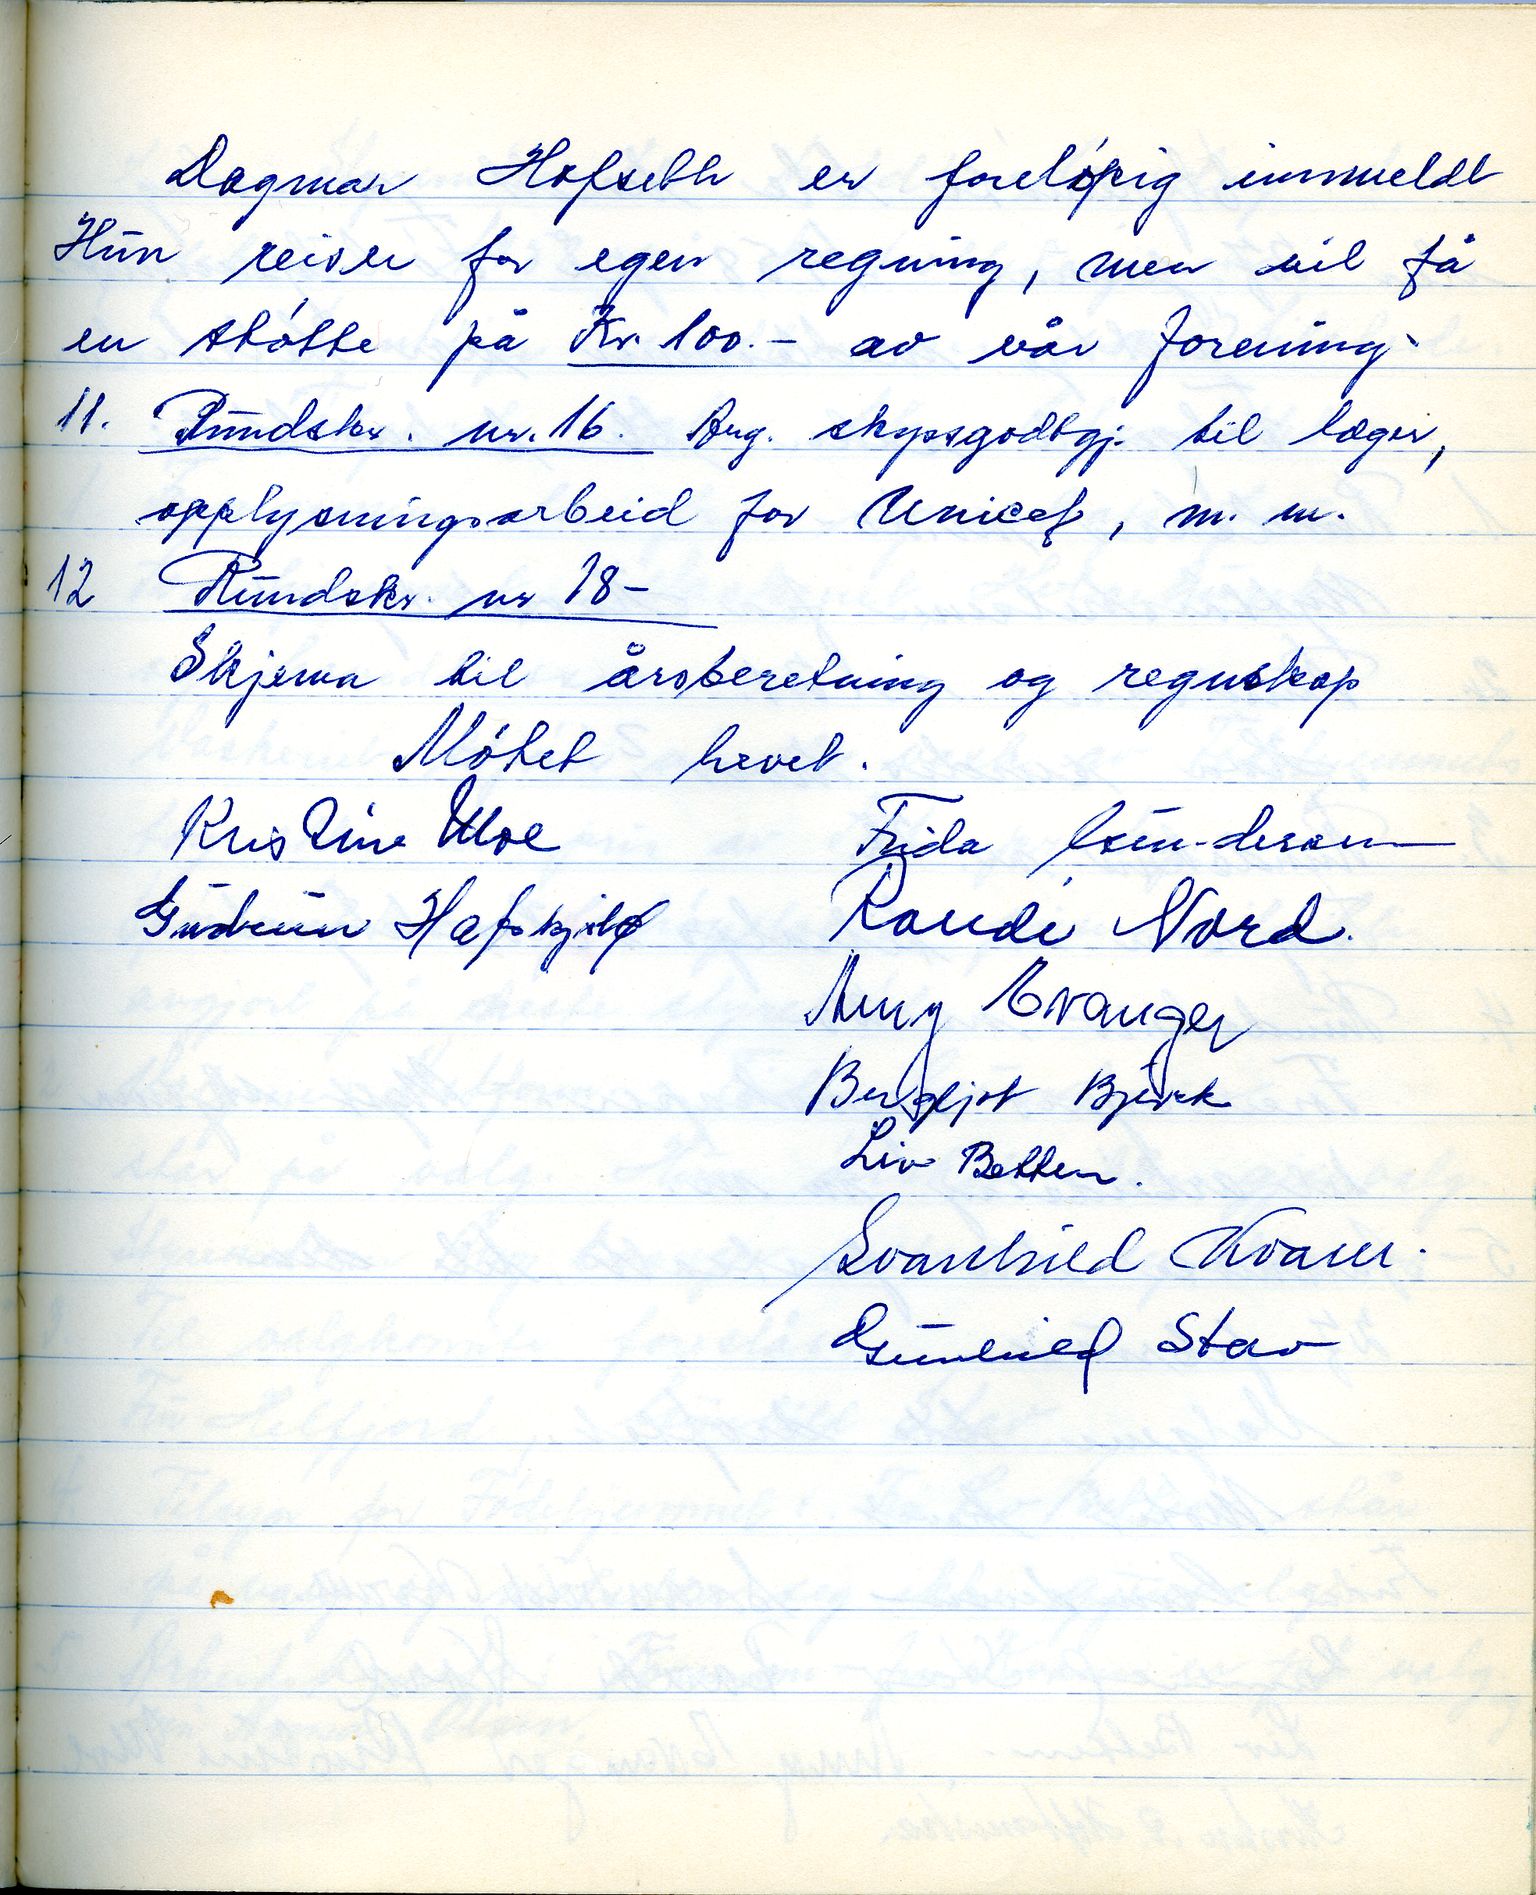 Dagmar Hofseth er foreløpig innmeldt
Hun reiser for egen regning, men vil få
en støtte på Kr. 100.- av vår forening.
11. Rundskr. nr. 16. Ang. skyssgodtgj. til læger,
opplysningsarbeid for Unicef, m. m.
12 Rundskr. nr 18-
Skjema til årsberetning og regnskap
Møtet hevet.
Kristine Moe Frida
Gudrun Hafskjold Randi Nord.
Amy Evanger
Bergljot Bjørk
Liv Betten.
Svanhild Kvam.
Gunhild Stav